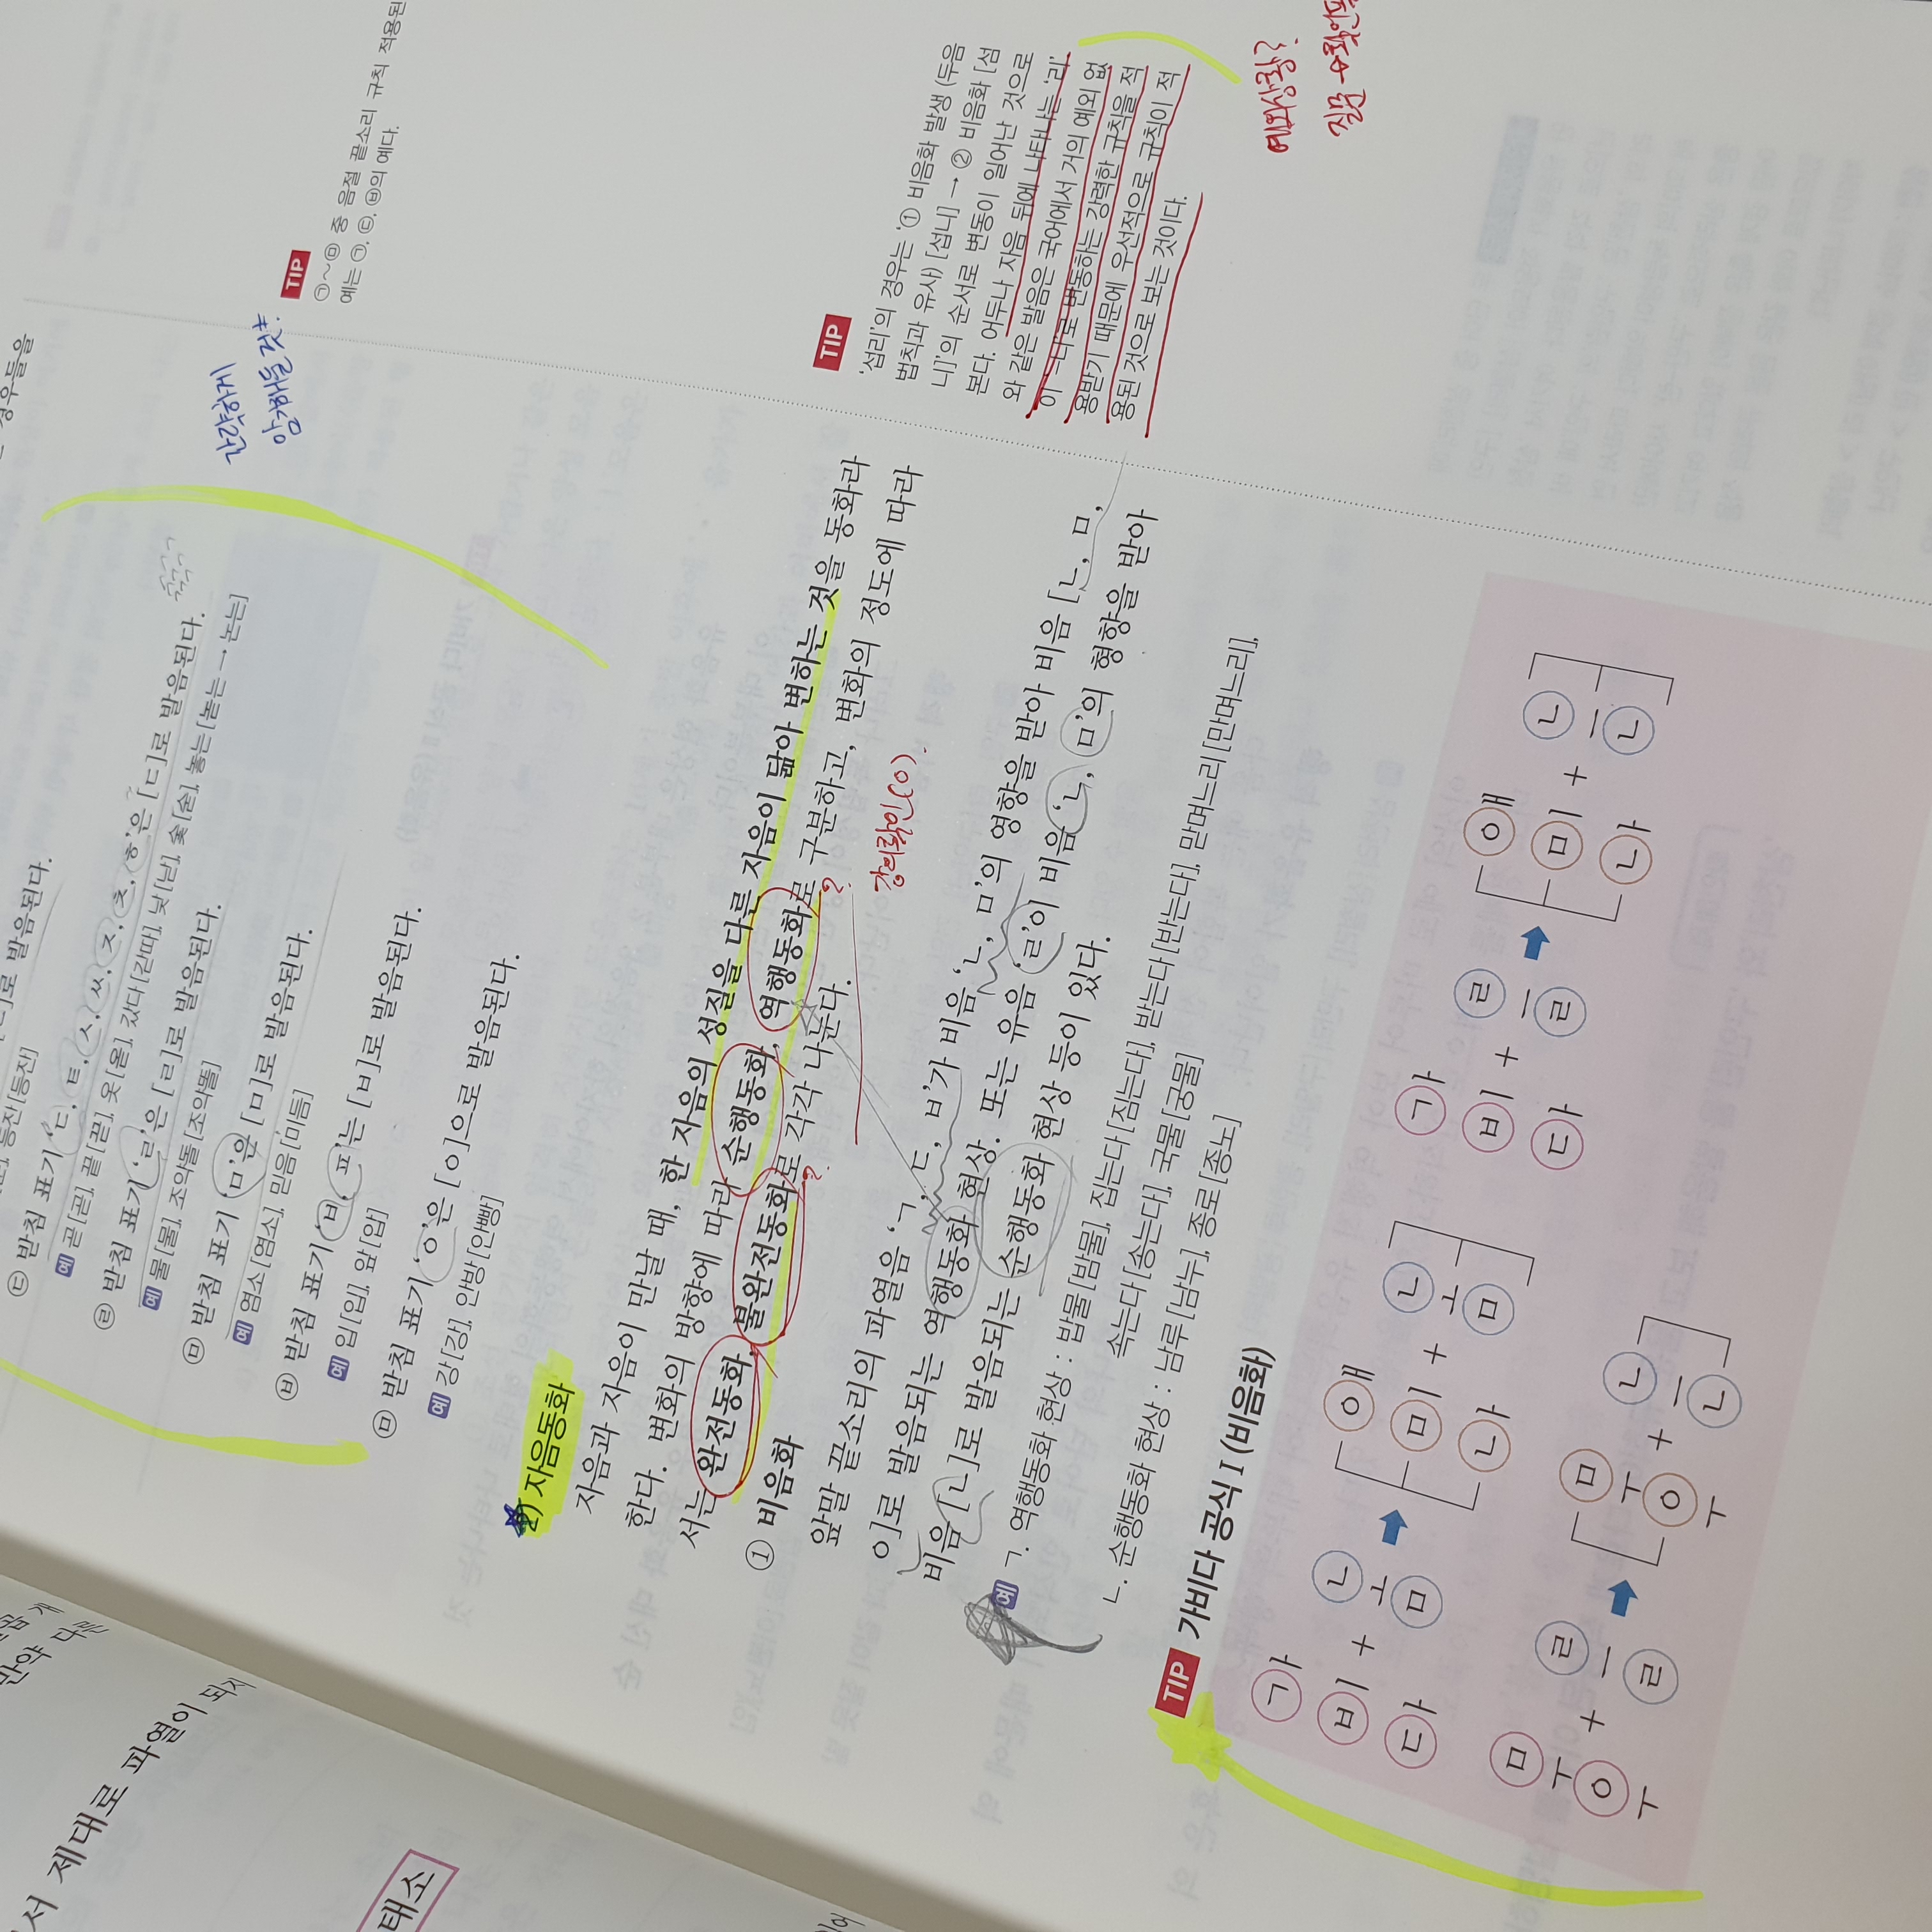 ㄷ 받침 표기 'ㄷ, ㅌ, ㅅ, ㅆ, ㅈ, ㅊ, ㅎ'은 [ㄷ]로 발음된다.
예 곧[곧], 끝[끋], 옷[옫], 갔다[갇따], 낮[낟], 숯[숟], 놓는[녿는→논는]
ㄹ 받침 표기 'ㄹ'은 [ㄹ]로 발음된다.
예 물[물], 조약돌[조약똘]
ㅁ 받침 표기 'ㅁ'은 [ㅁ]로 발음된다.
예 염소[염소], 믿음[미듬]
ㅂ 받침 표기 'ㅂ, ㅍ'는 [ㅂ]로 발음된다.
예 입[입], 앞[압]
ㅁ 받침 표기 'ㅇ'은 [ㅇ]으로 발음된다.
예 강[강], 안방[안빵]
간략하게
암기해둘 것※
TIP
㉠~㉤ 중 음절 끝소리 규칙 적용된
예는 ㉠, ㉢, ㉥의 예다.
2) 자음동화
자음과 자음이 만날 때, 한 자음의 성질을 다른 자음이 닮아 변하는 것을 동화라
한다. 변화의 방향에 따라 순행동화, 역행동화로 구분하고, 변화의 정도에 따라
서는 완전동화, 불완전동화로 각각 나눈다.
강의확인(O).
① 비음화
앞말 끝소리의 파열음 'ㄱ, ㄷ, ㅂ'가 비음 'ㄴ, ㅁ'의 영향을 받아 비음 [ㄴ, ㅁ,
ㅇ]로 발음되는 역행동화 현상. 또는 유음 'ㄹ'이 비음 'ㄴ, ㅁ'의 형향을 받아
비음 [ㄴ]로 발음되는 순행동화 현상 등이 있다.
예 ㄱ. 역행동화 현상 : 밥물[밤물], 집는다[짐는다], 받는다[반는다], 맏며느리[만며느리],
속는다[송는다], 국물[궁물]
ㄴ. 순행동화 현상 : 남루[남누], 종로[종노]
TIP
'섭리'의 경우는 '① 비음화 발생 (두음
법칙과 유사) [섭니] → ② 비음화 [섬
니]'의 순서로 변동이 일어난 것으로
본다. 어두나 자음 뒤에 나타나는 '리'
와 같은 발음은 국어에서 거의 예외 없
이 '니'로 변동하는 강력한 규칙을 적
용받기 때문에 우선적으로 규칙이 적
용된 것으로 보는 것이다.
예외상황?
TIP 가비다 공식 I (비음화)
가 비 다 + 노 ㅁ → 애 미 나 + 노 ㅁ
가 비 다 + 리 ㄹ → 애 미 나 + 니 ㄴ
무 우 + 리 ㄹ → 무 우 + 니 ㄴ
서 제대로 파열이 되지
태소